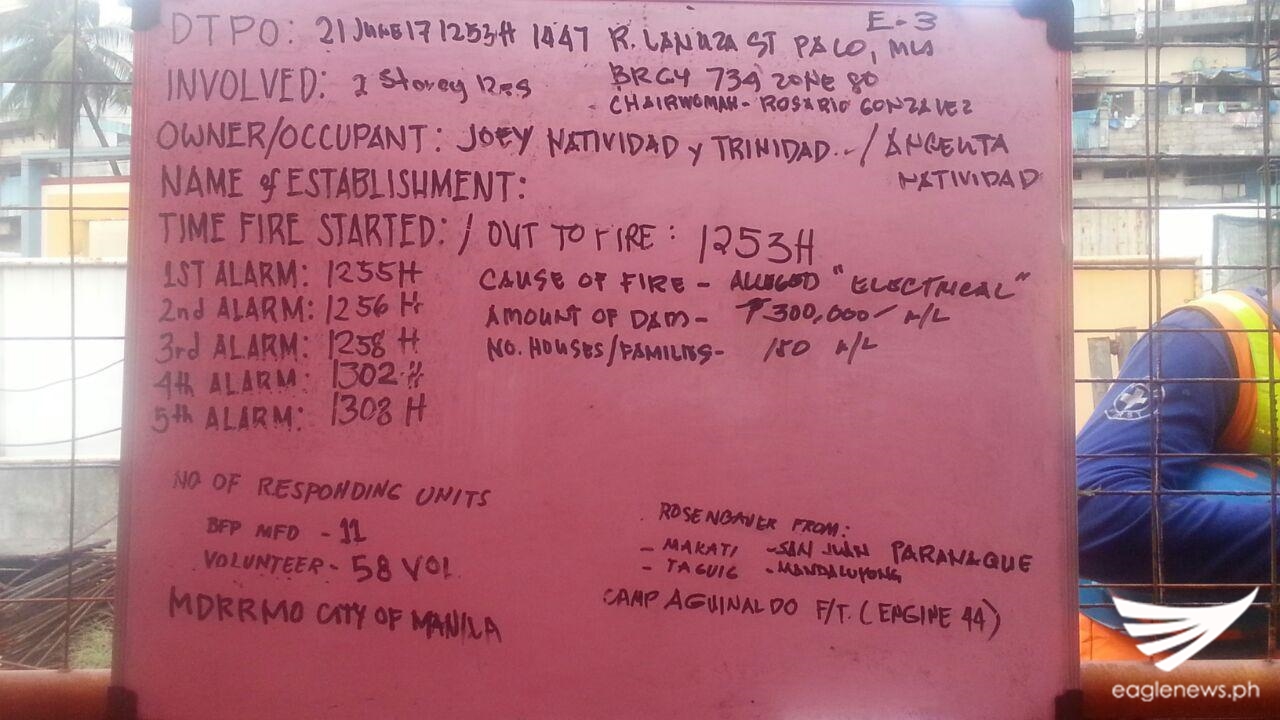 E-3
DTPO: 21 JUNE 17 1253H 1447 R. LANUZA ST PACO, MLA
INVOLVED: 2 Storey Res BRGY 734 ZONE 80
CHAIRWOMAN - ROSARIO GONZALEZ
OWNER/OCCUPANT: JOEY NATIVIDAD y TRINIDAD / ANGELITA
NATIVIDAD
NAME of ESTABLISHMENT:
TIME FIRE STARTED: / OUT TO FIRE: 1253H
1ST ALARM: 1255H CAUSE OF FIRE - ALLEGED "ELECTRICAL"
2nd ALARM: 1256 H AMOUNT OF DAM - ₱300,000 M/L
3rd ALARM: 1258 H NO. HOUSES/FAMILIES - 150 M/L
4th ALARM: 1302 H
5th ALARM: 1308 H
NO OF RESPONDING UNITS
BFP MFD - 11
VOLUNTEER - 58 VOL
MDRRMO CITY OF MANILA
ROSENBAUER FROM:
- MAKATI - SAN JUAN PARANAQUE
- TAGUIG - MANDALUYONG
CAMP AGUINALDO F/T. (ENGINE 44)
eaglenews.ph